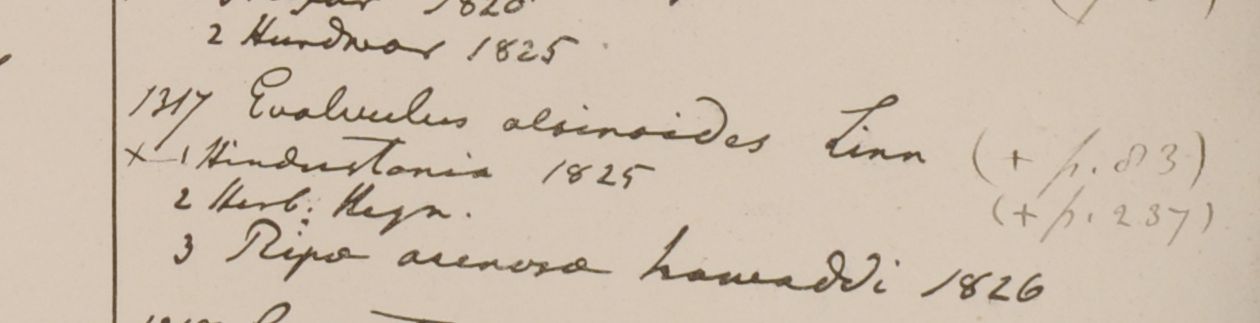 1820
2 Hurdwar 1825
1317 Evolvulus alsinoides Linn (+ p. 83)
×—1 Hindustania 1825 (+ p. 237)
2 Herb: Heyn.
3 Ripa arenosa Irawaddi 1826